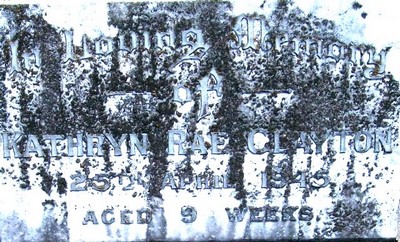 In Loving Memory
of
KATHRYN RAE CLAYTON
25TH APRIL 1945
AGED 9 WEEKS